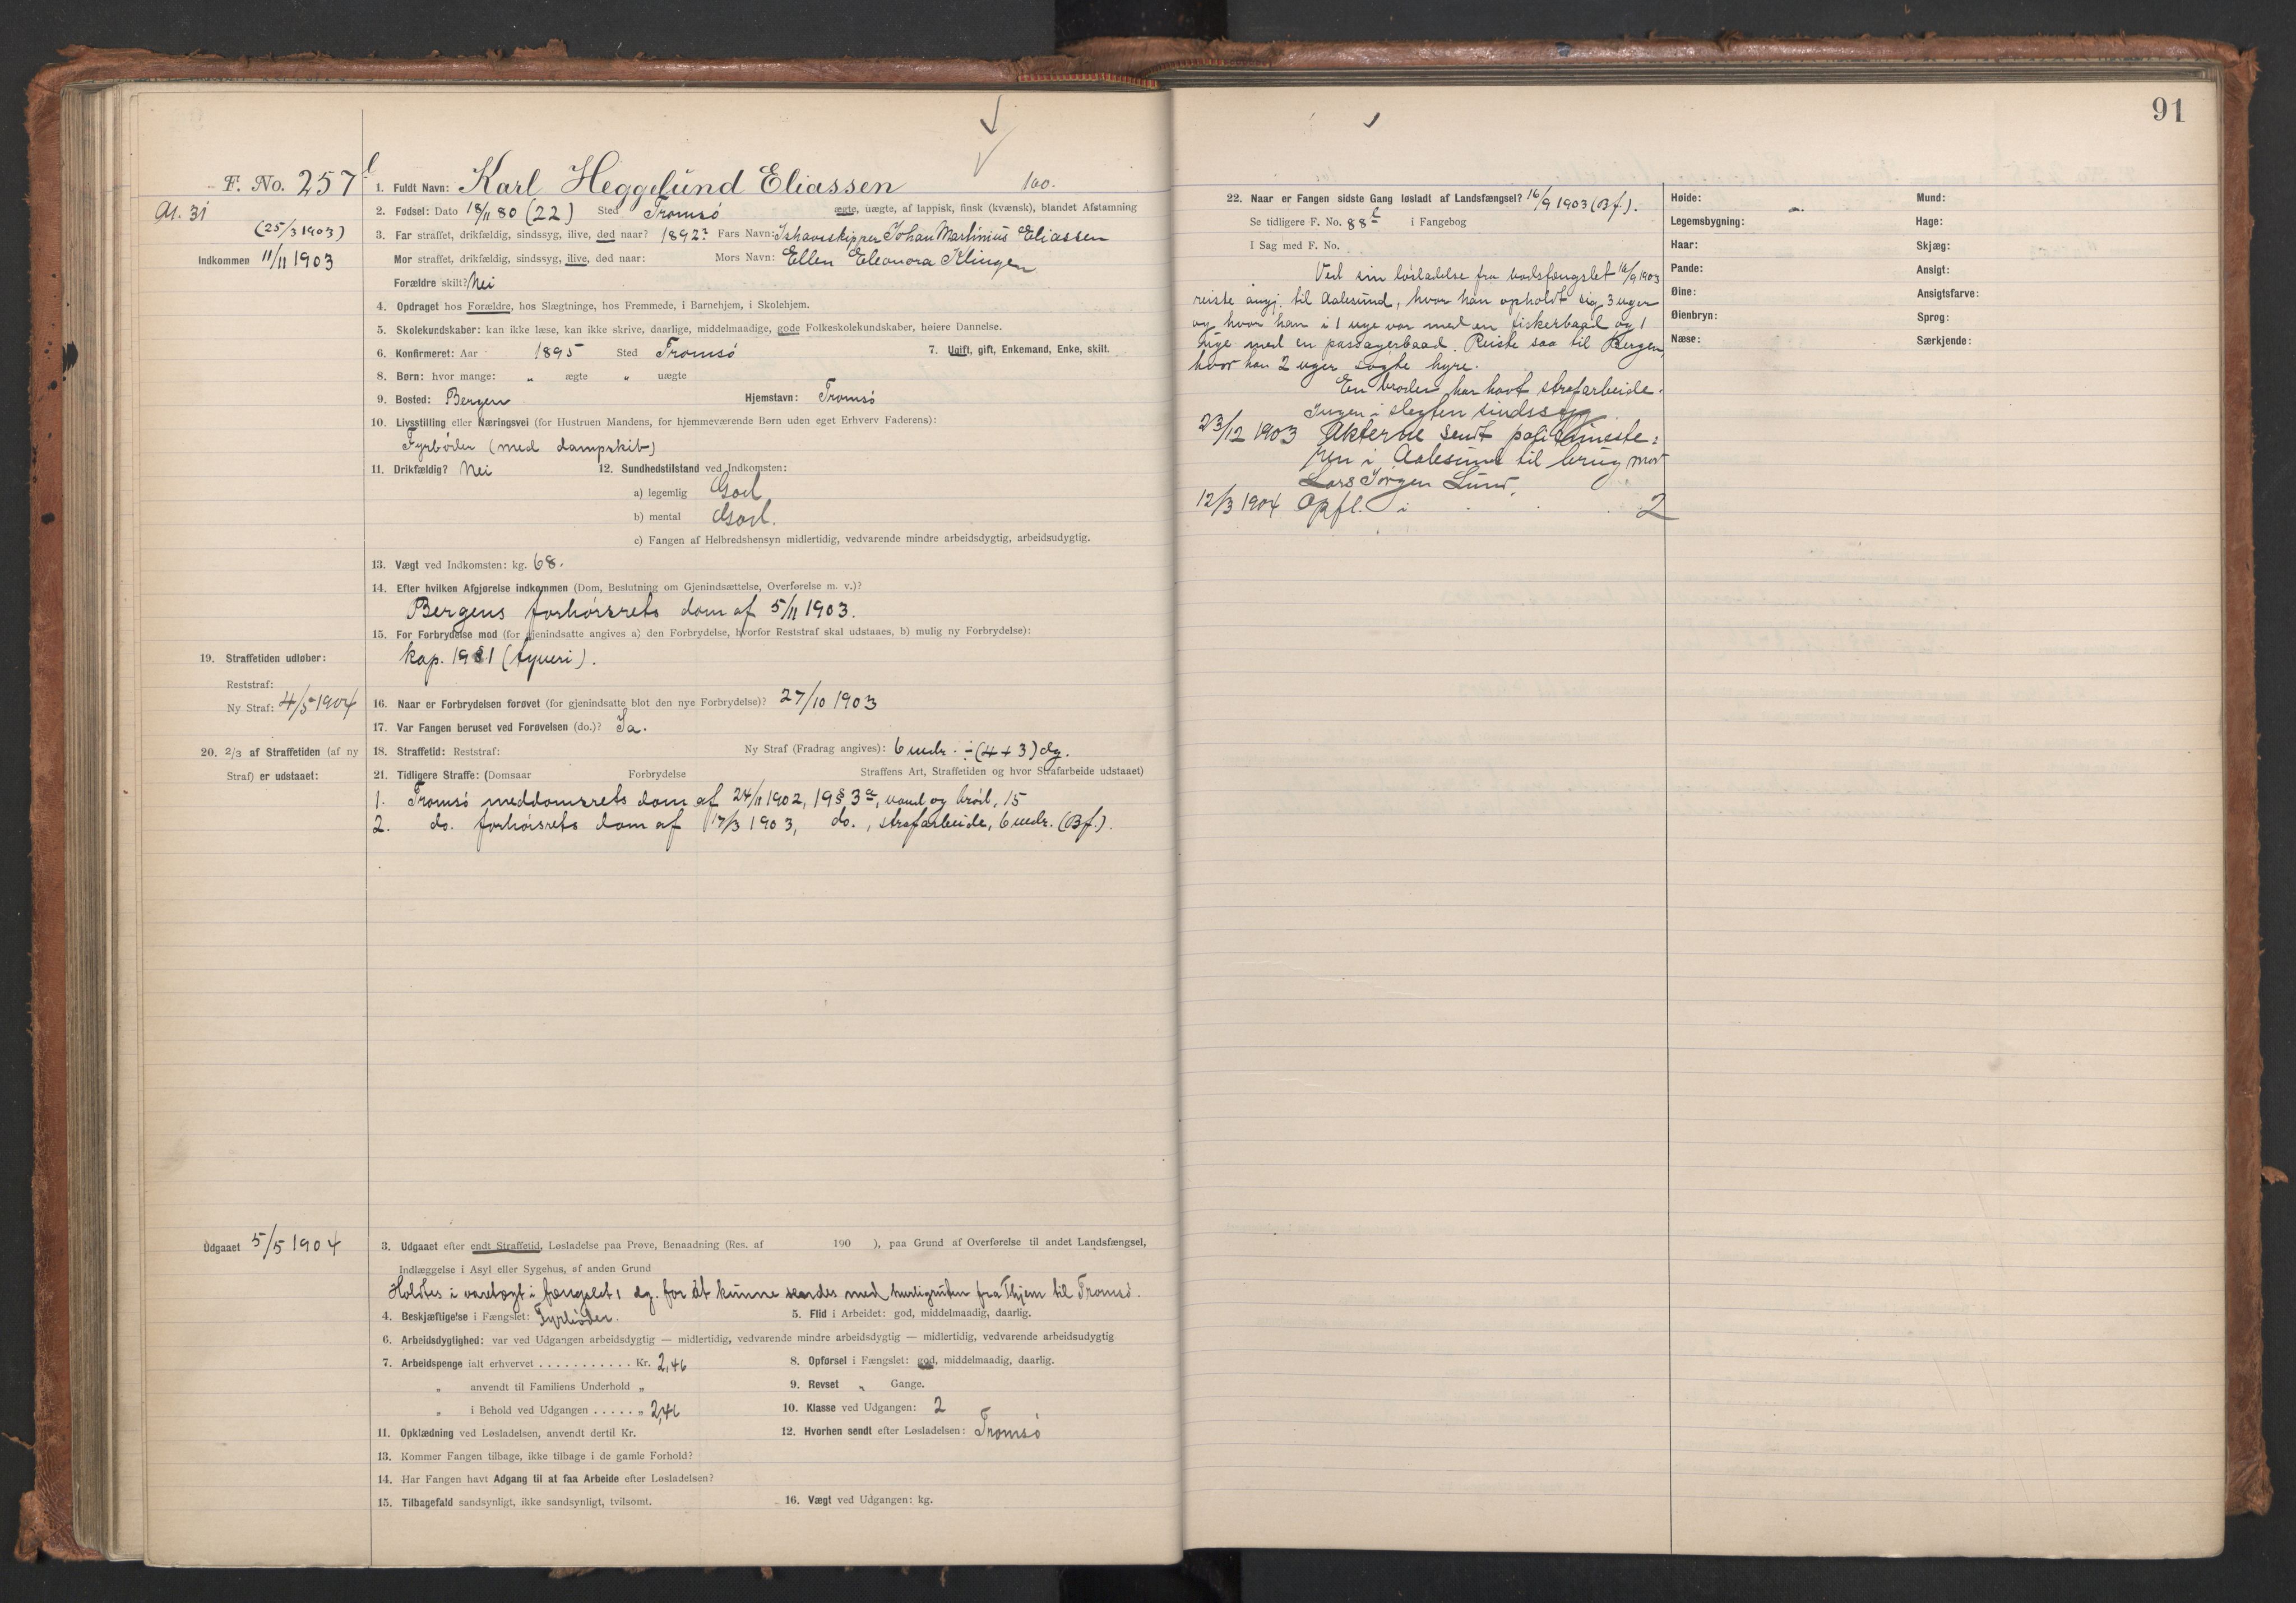 91
F. No. 257 l
1. Fuldt Navn: Karl Heggelund Eliassen 100.
A1. 31
2. Fødsel: Dato 18/11 80 (22) Sted Tromsö ægte, uægte, af lappisk, finsk (kvænsk), blandet Afstamning
(25/3 1903)
3. Far straffet, drikfældig, sindssyg, ilive, død naar? 1892? Fars Navn: Ishavsskipper Johan Martinius Eliassen
Indkommen 11/11 1903
Mor straffet, drikfældig, sindssyg, ilive, død naar: Mors Navn: Ellen Eleonora Klingen
Forældre skilt? Nei
4. Opdraget hos Forældre, hos Slægtninge, hos Fremmede, i Barnehjem, i Skolehjem.
5. Skolekundskaber: kan ikke læse, kan ikke skrive, daarlige, middelmaadige, gode Folkeskolekundskaber, høiere Dannelse.
6. Konfirmeret: Aar 1895 Sted Tromsö 7. Ugift, gift, Enkemand, Enke, skilt.
8. Børn: hvor mange: „ ægte „ uægte
9. Bosted: Bergen Hjemstavn: Tromsö
10. Livsstilling eller Næringsvei (for Hustruen Mandens, for hjemmeværende Børn uden eget Erhverv Faderens):
Fyrböder (med dampskib)
11. Drikfældig? Nei 12. Sundhedstilstand ved Indkomsten:
a) legemlig God
b) mental God.
c) Fangen af Helbredshensyn midlertidig, vedvarende mindre arbeidsdygtig, arbeidsudygtig.
13. Vægt ved Indkomsten: kg. 68.
14. Efter hvilken Afgjørelse indkommen (Dom, Beslutning om Gjenindsættelse, Overførelse m. v.)?
Bergens forhörsrets dom af 5/11 1903.
15. For Forbrydelse mod (for gjenindsatte angives a) den Forbrydelse, hvorfor Reststraf skal udstaaes, b) mulig ny Forbrydelse):
kap. 19 § 1 (tyveri).
19. Straffetiden udløber:
Reststraf:
Ny Straf: 4/5 1904
16. Naar er Forbrydelsen forøvet (for gjenindsatte blot den nye Forbrydelse)? 27/10 1903
17. Var Fangen beruset ved Forøvelsen (do.)? Ja.
20. 2/3 af Straffetiden (af ny
Straf) er udstaaet:
18. Straffetid: Reststraf: Ny Straf (Fradrag angives): 6 mdr. ÷ (4 + 3) dg.
21. Tidligere Straffe: (Domsaar Forbrydelse Straffens Art, Straffetiden og hvor Strafarbeide udstaaet)
1. Tromsö meddomsrets dom af 24/11 1902, 19 § 3 a, vand og bröd, 15
2. do. forhörsrets dom af 17/3 1903, do., strafarbeide, 6 mdr. (Bf.).
Udgaaet 5/5 1904
3. Udgaaet efter endt Straffetid, Løsladelse paa Prøve, Benaadning (Res. af 190 ), paa Grund af Overførelse til andet Landsfængsel,
Indlæggelse i Asyl eller Sygehus, af anden Grund
Holdtes i varetægt i fængslet 1 dg. for at kunne sendes med hurtigruten fra Thjem til Tromsö.
4. Beskjæftigelse i Fængslet: Fyrböder. 5. Flid i Arbeidet: god, middelmaadig, daarlig.
6. Arbeidsdyglighed: var ved Udgangen arbeidsdygtig — midlertidig, vedvarende mindre arbeidsdygtig — midlertidig, vedvarende arbeidsudygtig
7. Arbeidspenge ialt erhvervet . . . . . . . . . . . Kr. 2,46 8. Opførsel i Fængslet: god, middelmaadig, daarlig.
„ anvendt til Familiens Underhold „ 9. Revset „ Gange.
„ i Behold ved Udgangen . . . . . „ 2,46 10. Klasse ved Udgangen: 2
11. Opklædning ved Løsladelsen, anvendt dertil Kr. 12. Hvorhen sendt efter Løsladelsen: Tromsö
13. Kommer Fangen tilbage, ikke tilbage i de gamle Forhold?
14. Har Fangen havt Adgang til at faa Arbeide efter Løsladelsen?
15. Tilbagefald sandsynligt, ikke sandsynligt, tvilsomt. 16. Vægt ved Udgangen: kg.
22. Naar er Fangen sidste Gang løsladt af Landsfængsel? 16/9 1903 (Bf.).
Se tidligere F. No. 88 l i Fangebog
I Sag med F. No.
Ved sin lösladelse fra bodsfængslet 16/9 1903
reiste angj. til Aalesund, hvor han opholdt sig 3 uger
og hvor han i 1 uge var med en fiskerbaad og 1
uge med en passagerbaad. Reiste saa til Bergen,
hvor han 2 uger sögte hyre.
En broder har havt strafarbeide.
Ingen i slegten sindssyg
23/12 1903 Akterne sendt politimeste:
ren i Aalesund til brug mod
Lars Jörgen Lund.
12/3 1904 Opfl. i 2
Høide: Mund:
Legemsbygning: Hage:
Haar: Skjæg:
Pande: Ansigt:
Øine: Ansigtsfarve:
Øienbryn: Sprog:
Næse: Særkjende: